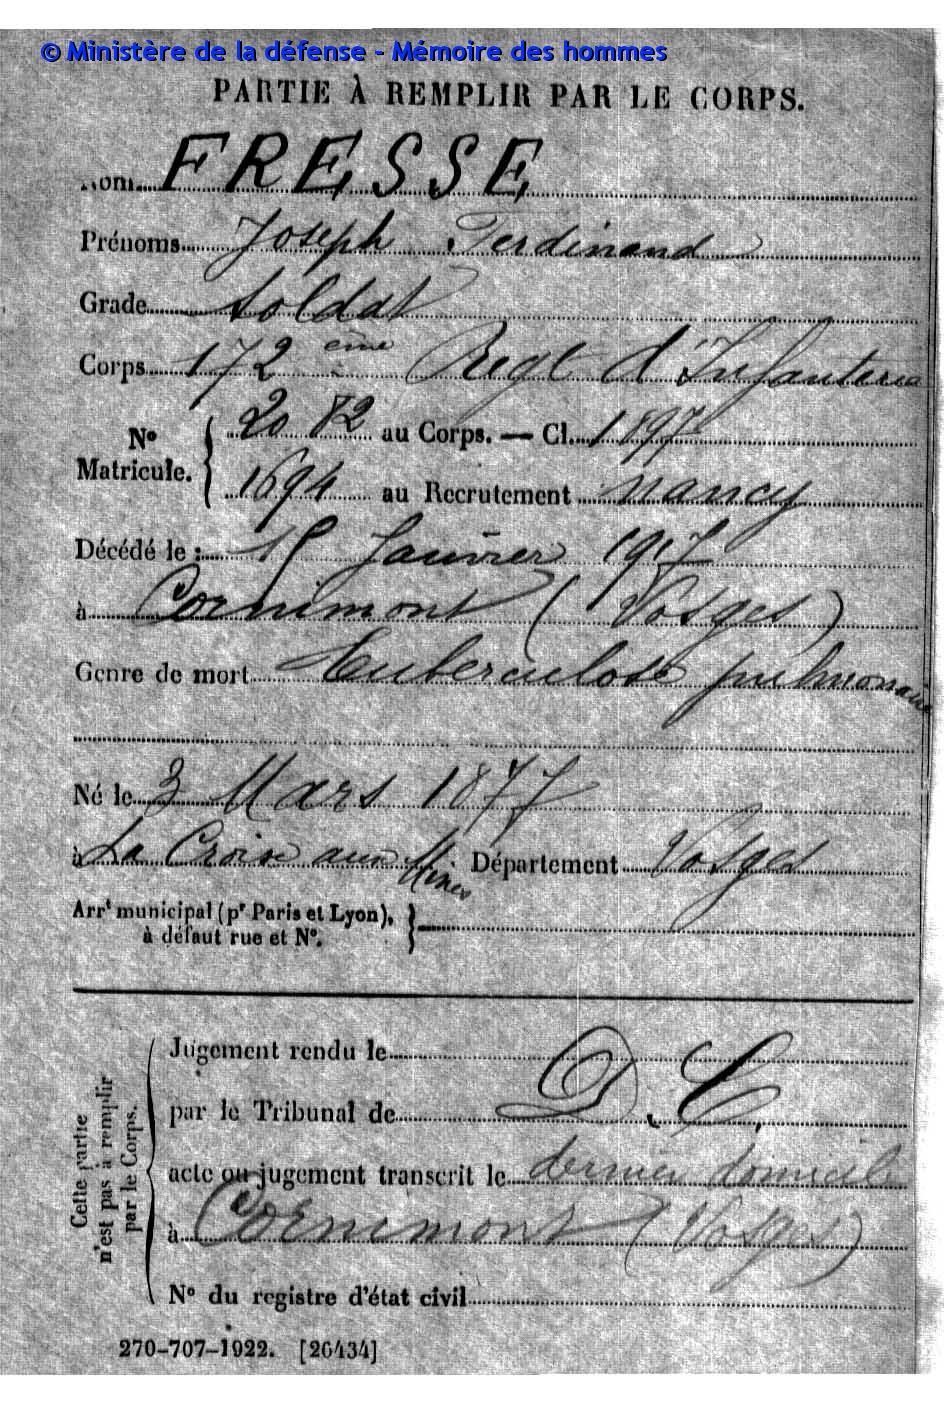 © Ministère de la défense - Mémoire des hommes
PARTIE À REMPLIR PAR LE CORPS.
Nom FRESSE
Prénoms Joseph Ferdinand
Grade Soldat
Corps 172 ème Regt d'Infanterie
N° Matricule. { 2082 au Corps. — Cl. 1897
1694 au Recrutement Nancy
Décédé le : 15 Janvier 1917
à Cornimont (Vosges)
Genre de mort Tuberculose pulmonaire
Né le 3 Mars 1877
à La Croix aux Mines Département Vosges
Arrt municipal (pr Paris et Lyon), }
à défaut rue et N°.
Cette partie
n'est pas à remplir
par le Corps.
Jugement rendu le
par le Tribunal de D. C.
acte ou jugement transcrit le dernier domicile
à Cornimont (Vosges)
N° du registre d'état civil
270-707-1922. [26434]